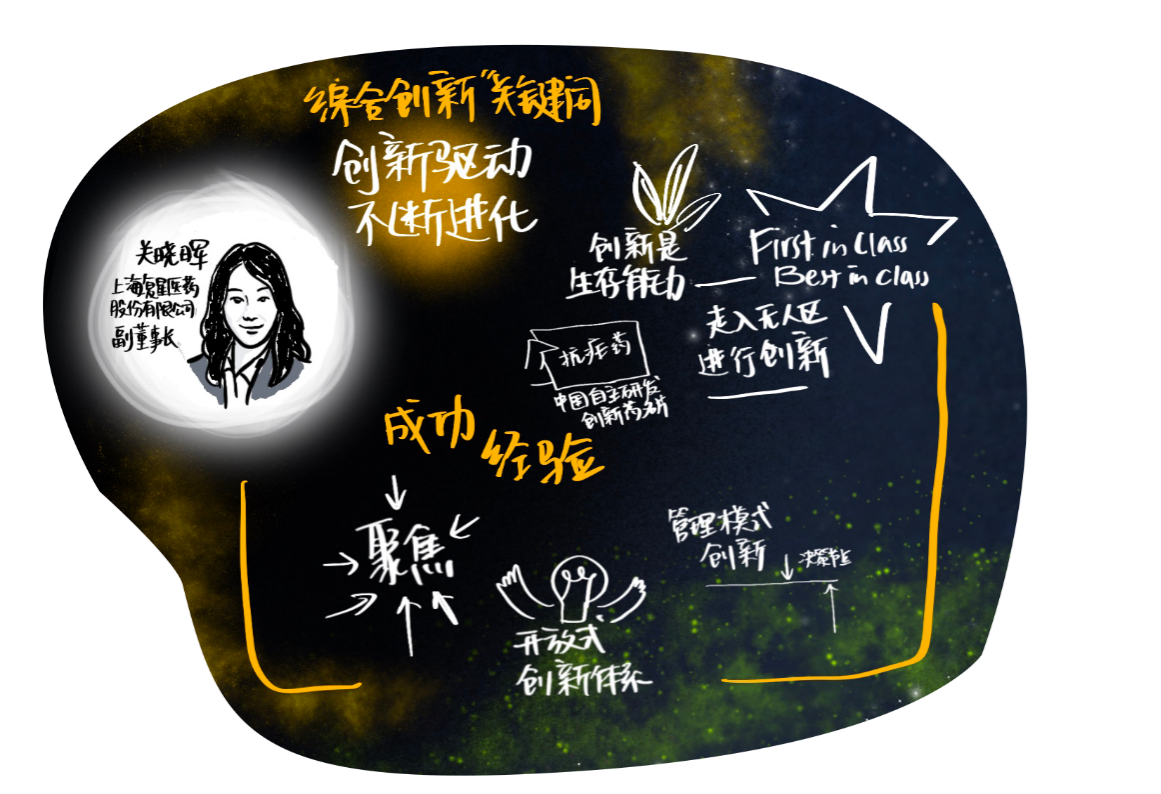 综合创新"关键词
创新驱动
不断进化
关晓晖
上海复星医药
股份有限公司
副董事长
创新是
生存能力
First in Class
Best in class
走入无人区
进行创新
抗疟药
中国自主研发
创新药名片
成功
经验
聚焦
开放式
创新体系
管理模式
创新
决策节点